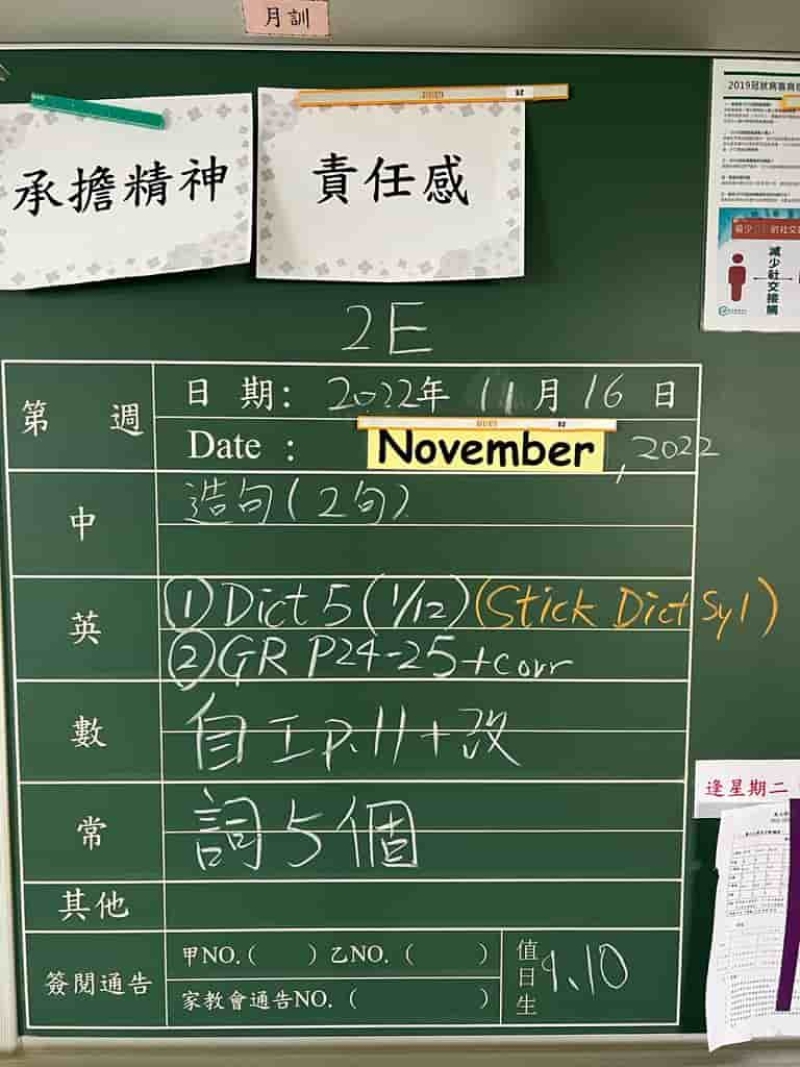 月訓
承擔精神
責任感
減少社交接觸
2E
第 週
日 期: 2022年 11月 16日
Date : November, 2022
中
造句(2句)
英
①Dict 5 (1/12) (Stick Dict Syl)
②GR P24-25+corr
數
自工p.11+改
常
詞5個
其他
簽閱通告
甲NO.( ) 乙NO.( )
家教會通告NO.( )
值日生 9、10
逢星期二